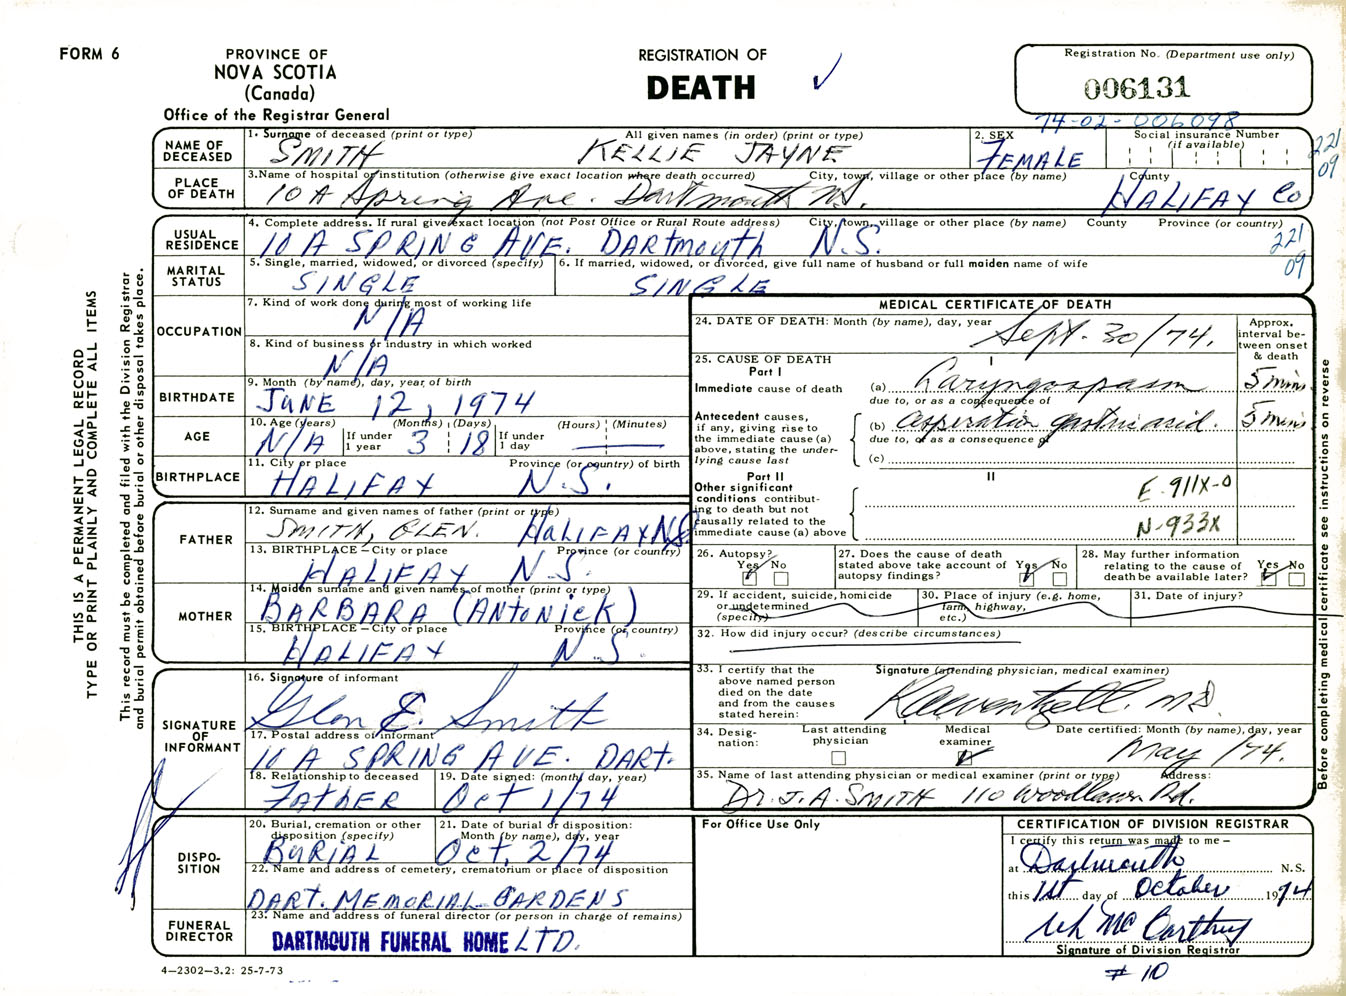 FORM 6
PROVINCE OF
NOVA SCOTIA
(Canada)
Office of the Registrar General
REGISTRATION OF
DEATH
Registration No. (Department use only)
006131
74-02-006098
NAME OF DECEASED
1. Surname of deceased (print or type) All given names (in order) (print or type)
SMITH KELLIE JAYNE
2. SEX
FEMALE
Social insurance Number
(if available)
221
09
PLACE OF DEATH
3.Name of hospital or institution (otherwise give exact location where death occurred) City, town, village or other place (by name) County
10 A Spring Ave. Dartmouth N.S. HALIFAX Co
USUAL RESIDENCE
4. Complete address. If rural give exact location (not Post Office or Rural Route address) City, town, village or other place (by name) County Province (or country)
10 A SPRING AVE. DARTmouth N.S.
221
09
MARITAL STATUS
5. Single, married, widowed, or divorced (specify)
SINGLE
6. If married, widowed, or divorced, give full name of husband or full maiden name of wife
SINGLE
OCCUPATION
7. Kind of work done during most of working life
N/A
8. Kind of business or industry in which worked
N/A
BIRTHDATE
9. Month (by name), day, year of birth
JUNE 12, 1974
AGE
10. Age (years) (Months) (Days) (Hours) (Minutes)
N/A If under 1 year 3 18 If under 1 day
BIRTHPLACE
11. City or place Province (or country) of birth
HALIFAX N.S.
FATHER
12. Surname and given names of father (print or type)
SMITH, GLEN. HALIFAX N.S.
13. BIRTHPLACE – City or place Province (or country)
HALIFAX N.S.
MOTHER
14. Maiden surname and given names of mother (print or type)
BARBARA (ANTONICK)
15. BIRTHPLACE – City or place Province (or country)
HALIFAX N.S.
SIGNATURE OF INFORMANT
16. Signature of informant
Glen E. Smith
17. Postal address of informant
10 A SPRING AVE. DART.
18. Relationship to deceased
FATHER
19. Date signed: (month) day, year)
Oct 1/74
DISPO-
SITION
20. Burial, cremation or other disposition (specify)
BURIAL
21. Date of burial or disposition: Month (by name), day, year
Oct. 2/74
22. Name and address of cemetery, crematorium or place of disposition
DART. MEMORIAL GARDENS
FUNERAL DIRECTOR
23. Name and address of funeral director (or person in charge of remains)
DARTMOUTH FUNERAL HOME LTD.
4—2302—3.2: 25-7-73
MEDICAL CERTIFICATE OF DEATH
24. DATE OF DEATH: Month (by name), day, year
Sept. 30/74.
Approx. interval be-
tween onset & death
25. CAUSE OF DEATH
Part I
I
Immediate cause of death
(a) Laryngospasm 5 mins.
due to, or as a consequence of
Antecedent causes, if any, giving rise to the immediate cause (a) above, stating the under-
lying cause last
(b) aspiration gastric acid. 5 mins
due to, or as a consequence of
(c)
Part II
II
Other significant conditions contribut-
ing to death but not causally related to the immediate cause (a) above
E-911X-0
N-933X
26. Autopsy?
Yes No
27. Does the cause of death stated above take account of autopsy findings?
Yes No
28. May further information relating to the cause of death be available later?
Yes No
29. If accident, suicide, homicide or undetermined (specify)
30. Place of injury (e.g. home, farm, highway, etc.)
31. Date of injury?
32. How did injury occur? (describe circumstances)
33. I certify that the above named person died on the date and from the causes stated herein:
Signature (attending physician, medical examiner)
MD.
34. Desig-
nation:
Last attending physician
Medical examiner
Date certified: Month (by name), day, year
May /74.
35. Name of last attending physician or medical examiner (print or type) Address:
Dr. J. A. SMITH 110 Woodlawn Rd.
For Office Use Only
CERTIFICATION OF DIVISION REGISTRAR
I certify this return was made to me –
at Dartmouth N.S.
this 1st day of October 1974
McCarthy
Signature of Division Registrar
# 10
THIS IS A PERMANENT LEGAL RECORD
TYPE OR PRINT PLAINLY AND COMPLETE ALL ITEMS
This record must be completed and filed with the Division Registrar
and burial permit obtained before burial or other disposal takes place.
Before completing medical certificate see instructions on reverse